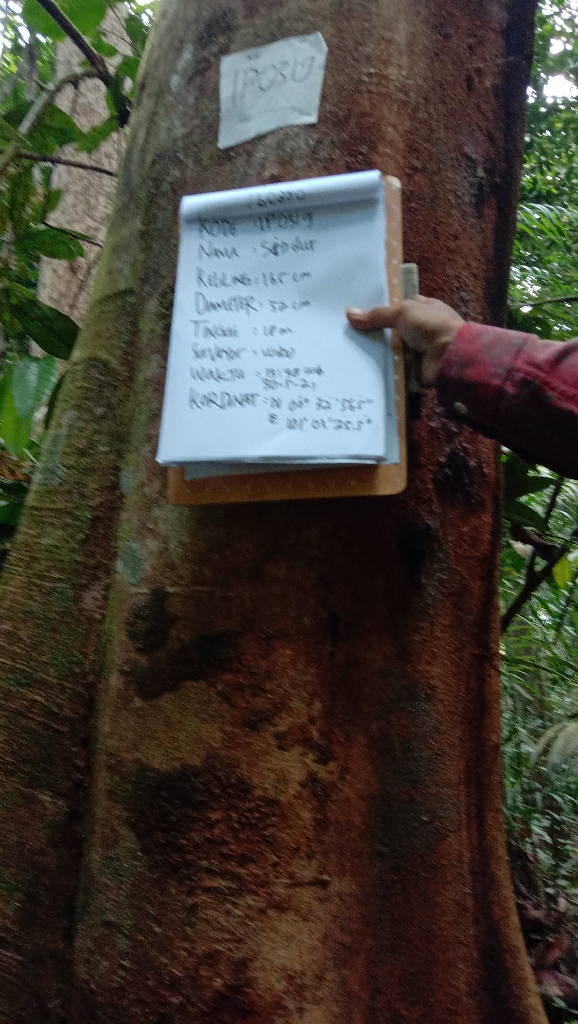 1P0319
KODE : 1P0319
NAMA : Sendur
KELILING : 165 cm
DIAMETER : 52 cm
TINGGI : 18 m
SURVEYOR :
WAKTU :
30-5-21
KORDINAT : N 00° 32'
E 101° 03' 25.5"